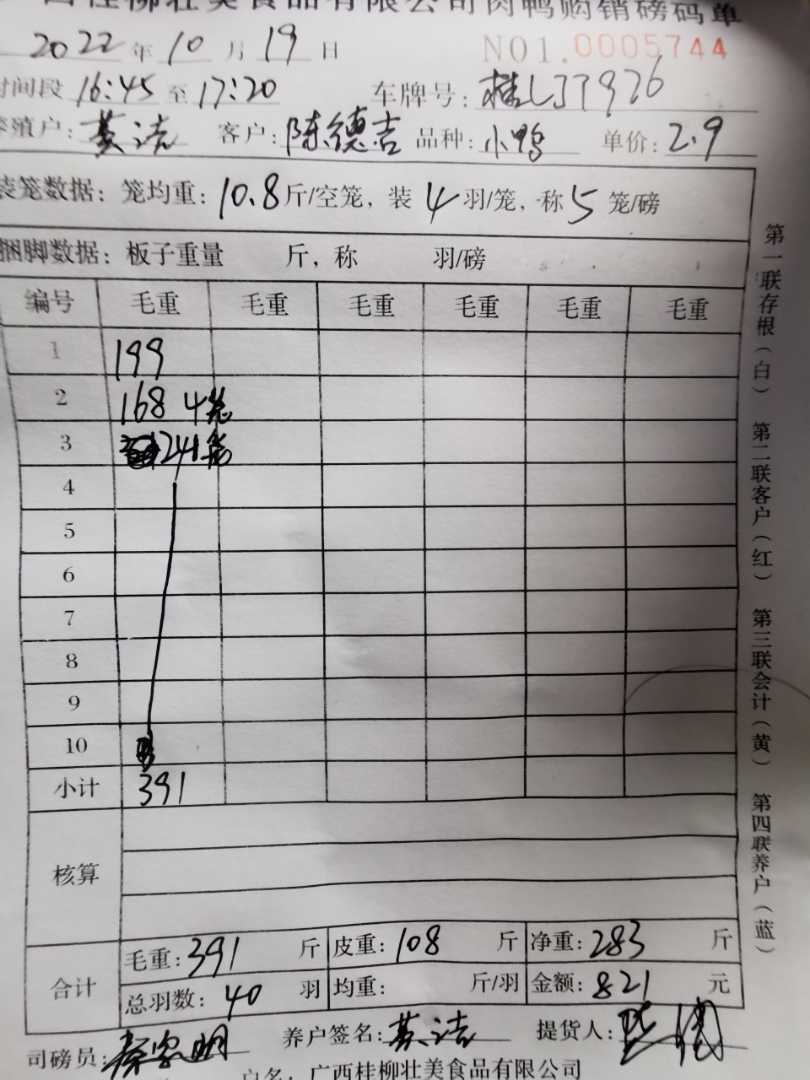 西桂柳壮美食品有限公司肉鸭购销磅码单
2022年10月19日 NO1.0005744
时间段 16:45 至 17:20 车牌号:
养殖户: 黄洁 客户: 陈德吉 品种: 小鸭 单价: 2.9
装笼数据: 笼均重: 10.8 斤/空笼, 装 4 羽/笼, 称 5 笼/磅
捆脚数据: 板子重量 斤, 称 羽/磅
编号 毛重 毛重 毛重 毛重 毛重 毛重
1 199
2 168 4笼
3 24 1笼
4
5
6
7
8
9
10
小计 391
核算
合计 毛重: 391 斤 皮重: 108 斤 净重: 283 斤
总羽数: 40 羽 均重: 斤/羽 金额: 821 元
司磅员: 养户签名: 黄洁 提货人:
户名: 广西桂柳壮美食品有限公司
第一联存根(白) 第二联客户(红) 第三联会计(黄) 第四联养户(蓝)